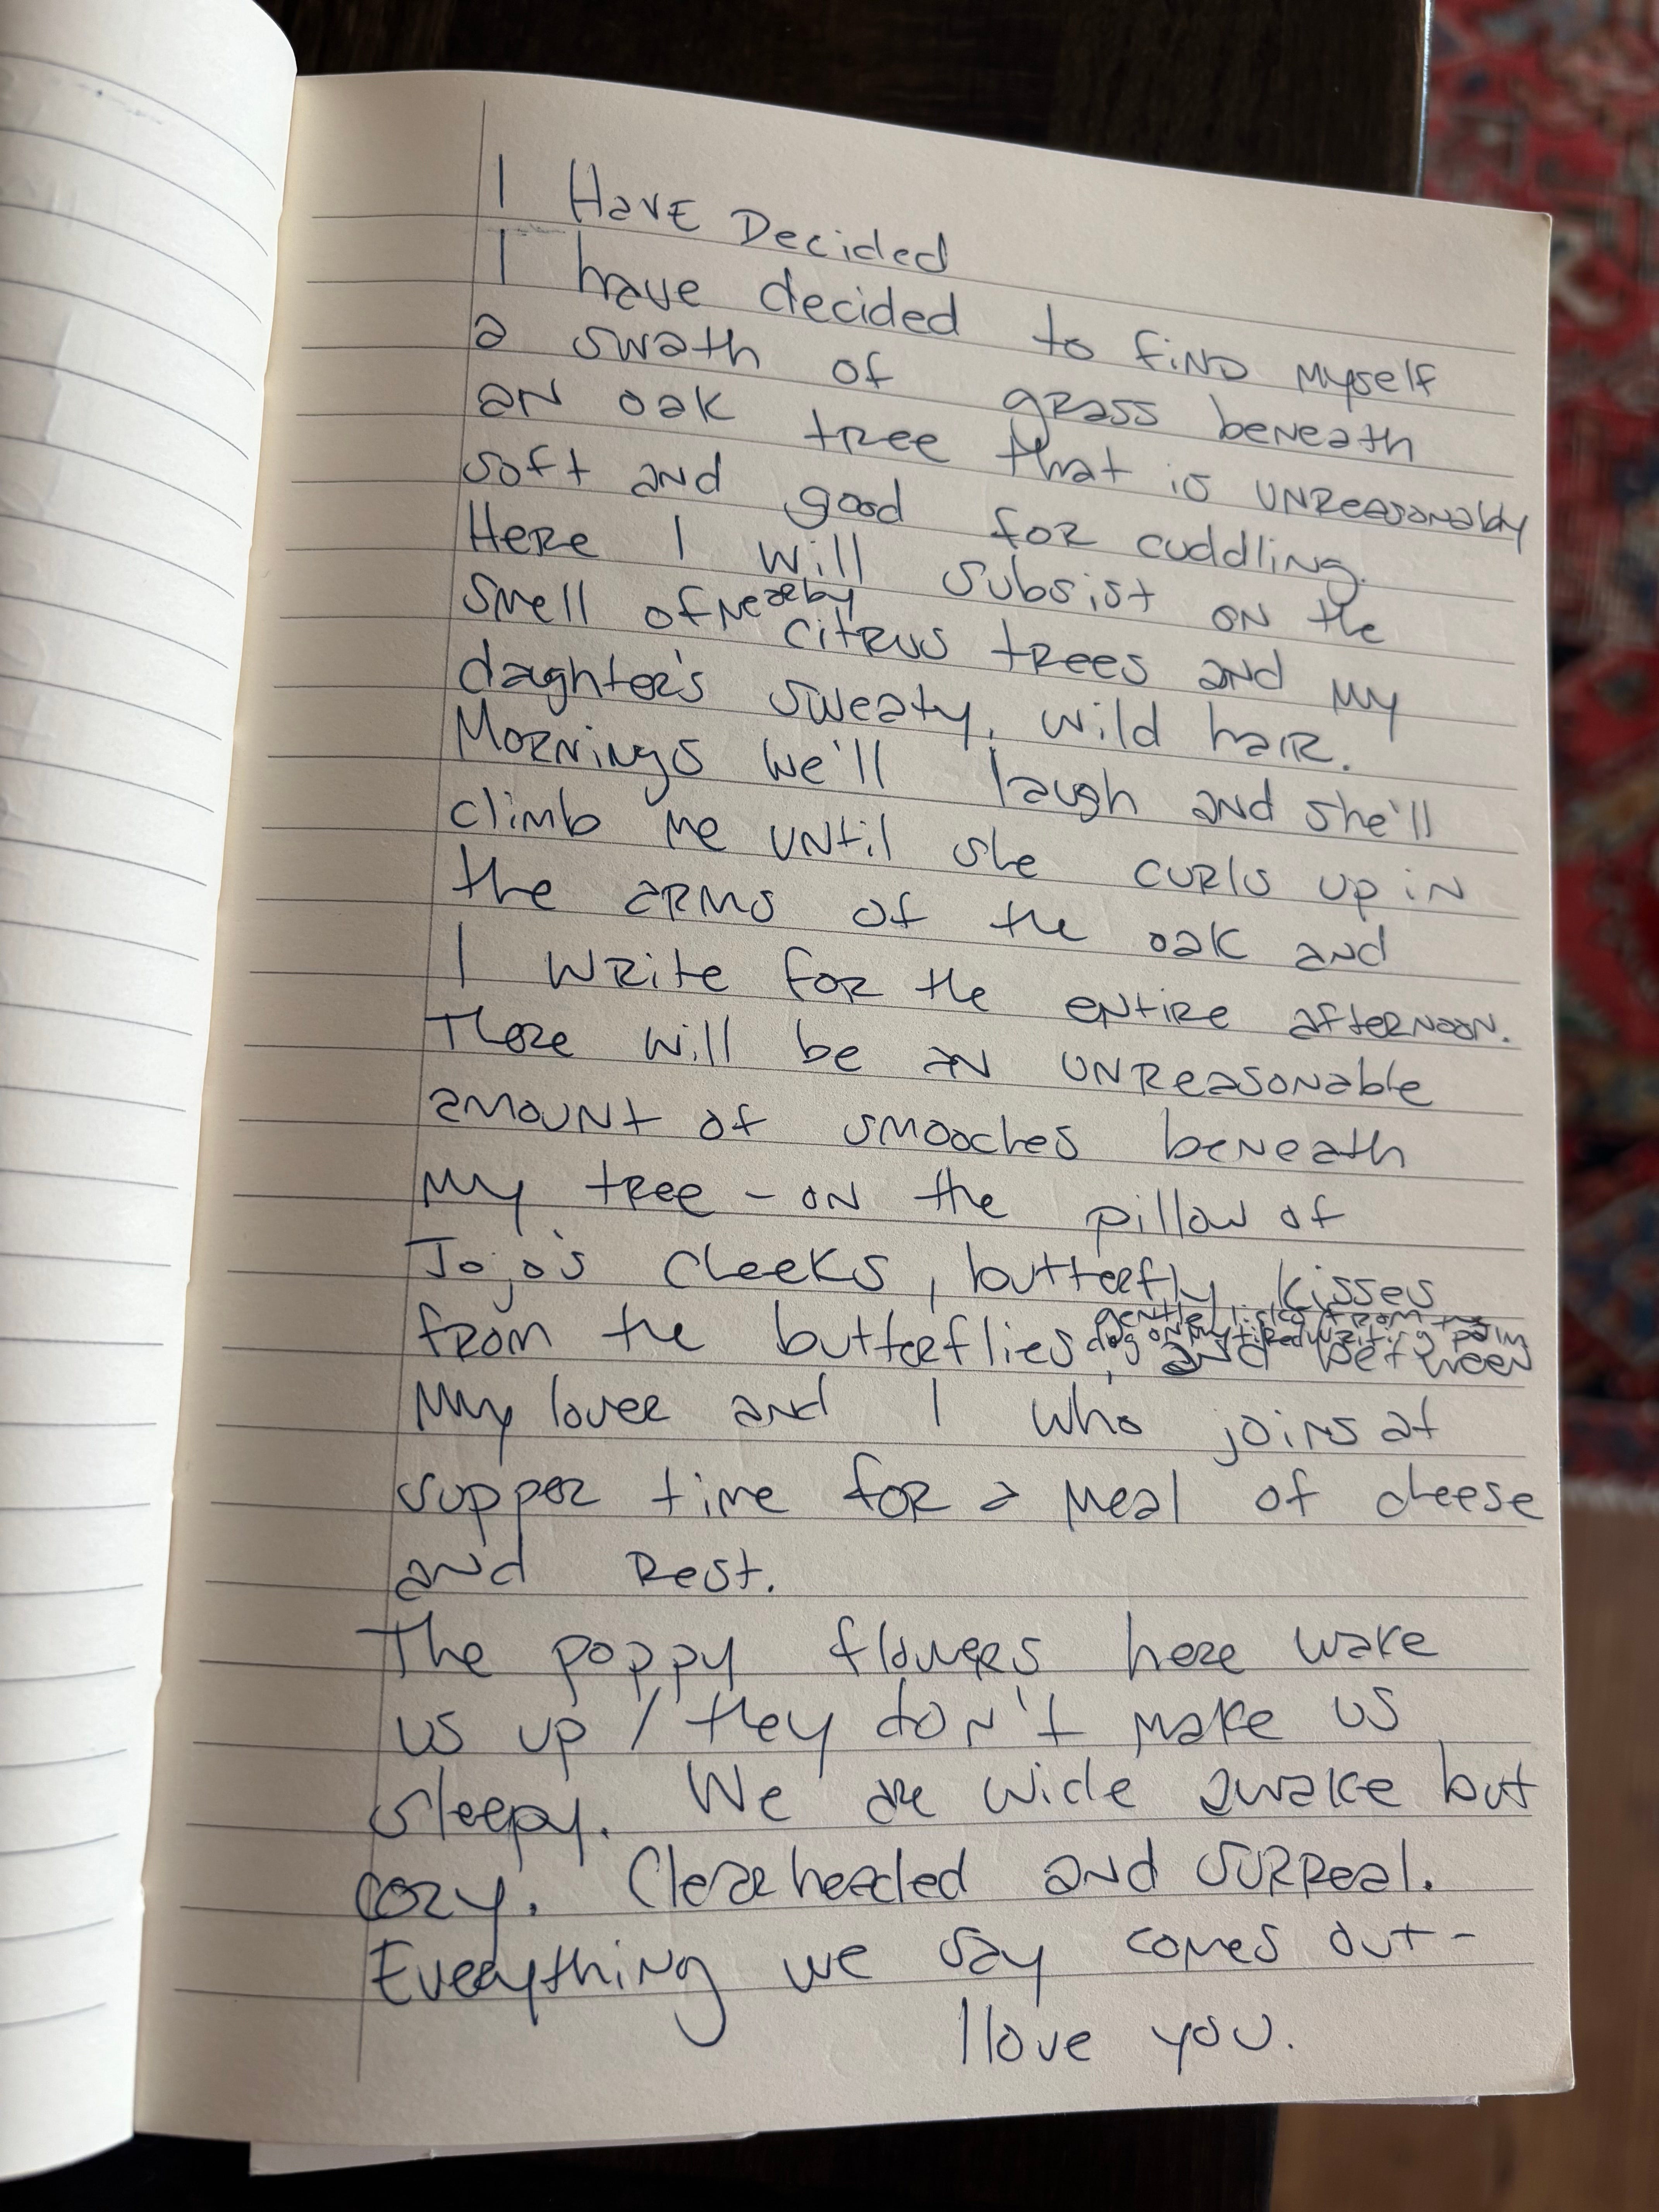 I Have Decided
I have decided to find myself
a swath of grass beneath
an oak tree that is unreasonably
soft and good for cuddling.
Here I will subsist on the
smell of nearby citrus trees and my
daughter's sweaty, wild hair.
Mornings we'll laugh and she'll
climb me until she curls up in
the arms of the oak and
I write for the entire afternoon.
There will be an unreasonable
amount of smooches beneath
my tree - on the pillow of
Jojo's cheeks, butterfly kisses
from the butterflies, gentle licks from the
dog on my tired writing palm
and between
my lover and I who joins at
supper time for a meal of cheese
and rest.
The poppy flowers here wake
us up / they don't make us
sleepy. We are wide awake but
cozy. Clearheaded and surreal.
Everything we say comes out -
I love you.